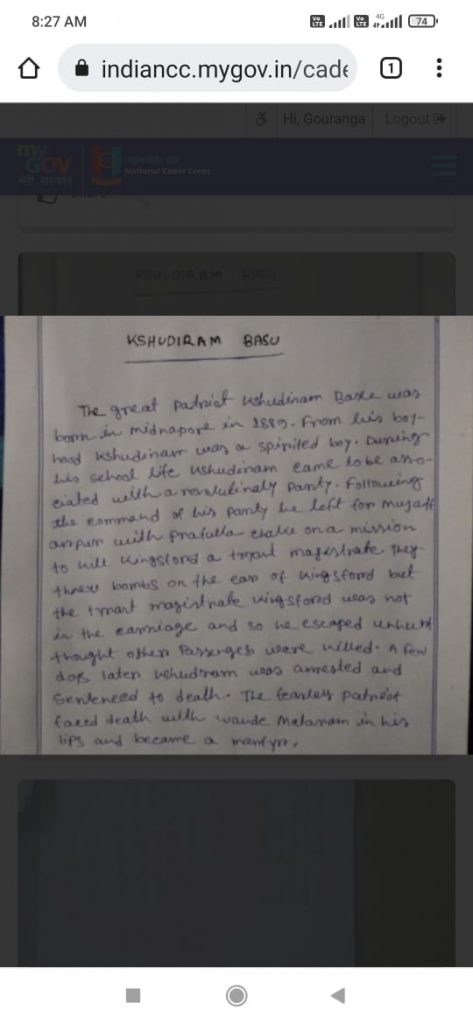 8:27 AM
Vo LTE
Vo LTE
4G
74
indiancc.mygov.in/cade
1
Hi, Gouranga
Logout
my GOV
मेरी सरकार
National Cadet Corps
Share
KSHUDIRAM BASU
KSHUDIRAM BASU
The great Patriot Kshudinam Basu was
born in midnapore in 1889. From his boy-
hood Kshudinam was a spinited boy. Duning
his school life Kshudinam came to be asso-
ciated with a revolutinaly Panty. Following
the command of his panty he left for muzaff
anpun with Prafulla chake on a mission
to kill Kingsford a tynant magistrate They
threw bombs on the can of Kingsfond but
the tynant magistnate Kingsfond was not
in the canniage and so he escaped unhunt
thought othen Passenges were killed. A few
days laten Kshudinam was annested and
Sentenced to death. The fearles patniot
faced death with wande Matanam in his
lips and became a mantyn.